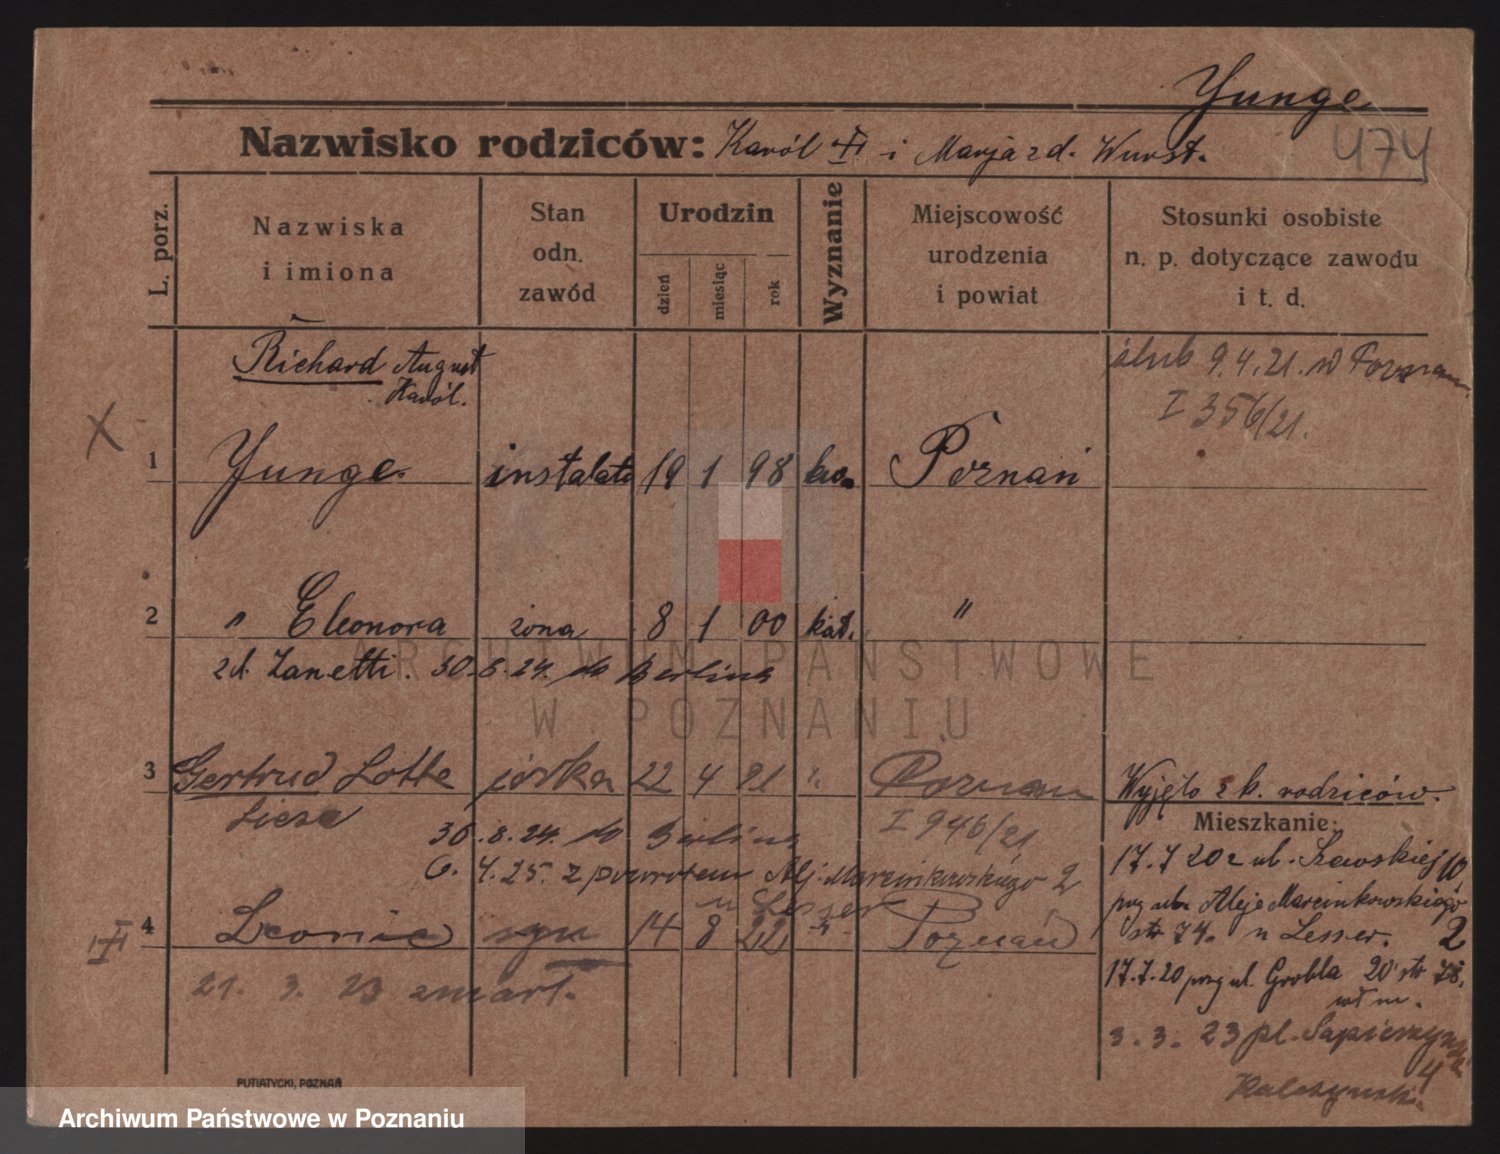 Yunge
474
Nazwisko rodziców: Karól i Marja zd. Wurst.
L. porz.
Nazwiska
i imiona
Stan
odn.
zawód
Urodzin
dzień
miesiąc
rok
Wyznanie
Miejscowość
urodzenia
i powiat
Stosunki osobiste
n. p. dotyczące zawodu
i t. d.
Richard August
Karól.
ślub 9.4.21. w Poznan
I 356/21.
X
1 Yunge. instalato 19 1 98 ew. Poznań
2 " Eleonora żona 8 1 00 kat. "
zd. Zanetti. 30.8.24. do Berlina
3 Gertrud Lotte córka 22 4 21 " Poznan
Liese
I 946/21
Wyjęto z k. rodziców.
Mieszkanie:
30.8.24. do Berlina
6.4.25. z powrotem Alj. Marcinkowskiego 2
u Lesser
4 Leonie syn 14 8 22 " Poznań
21. 3. 23 zmarł.
17.7 20 z ul. Szewskiej 10
przy ul. Aleje Marcinkowskiego
str 74. u Lesser. 2
17.7.20 przy ul. Grobla 20 str 78.
wł m.
3. 3. 23 pl. Sapieżyński
4
PUTIATYCKI, POZNAŃ
ARCHIWUM PAŃSTWOWE
W POZNANIU
Archiwum Państwowe w Poznaniu